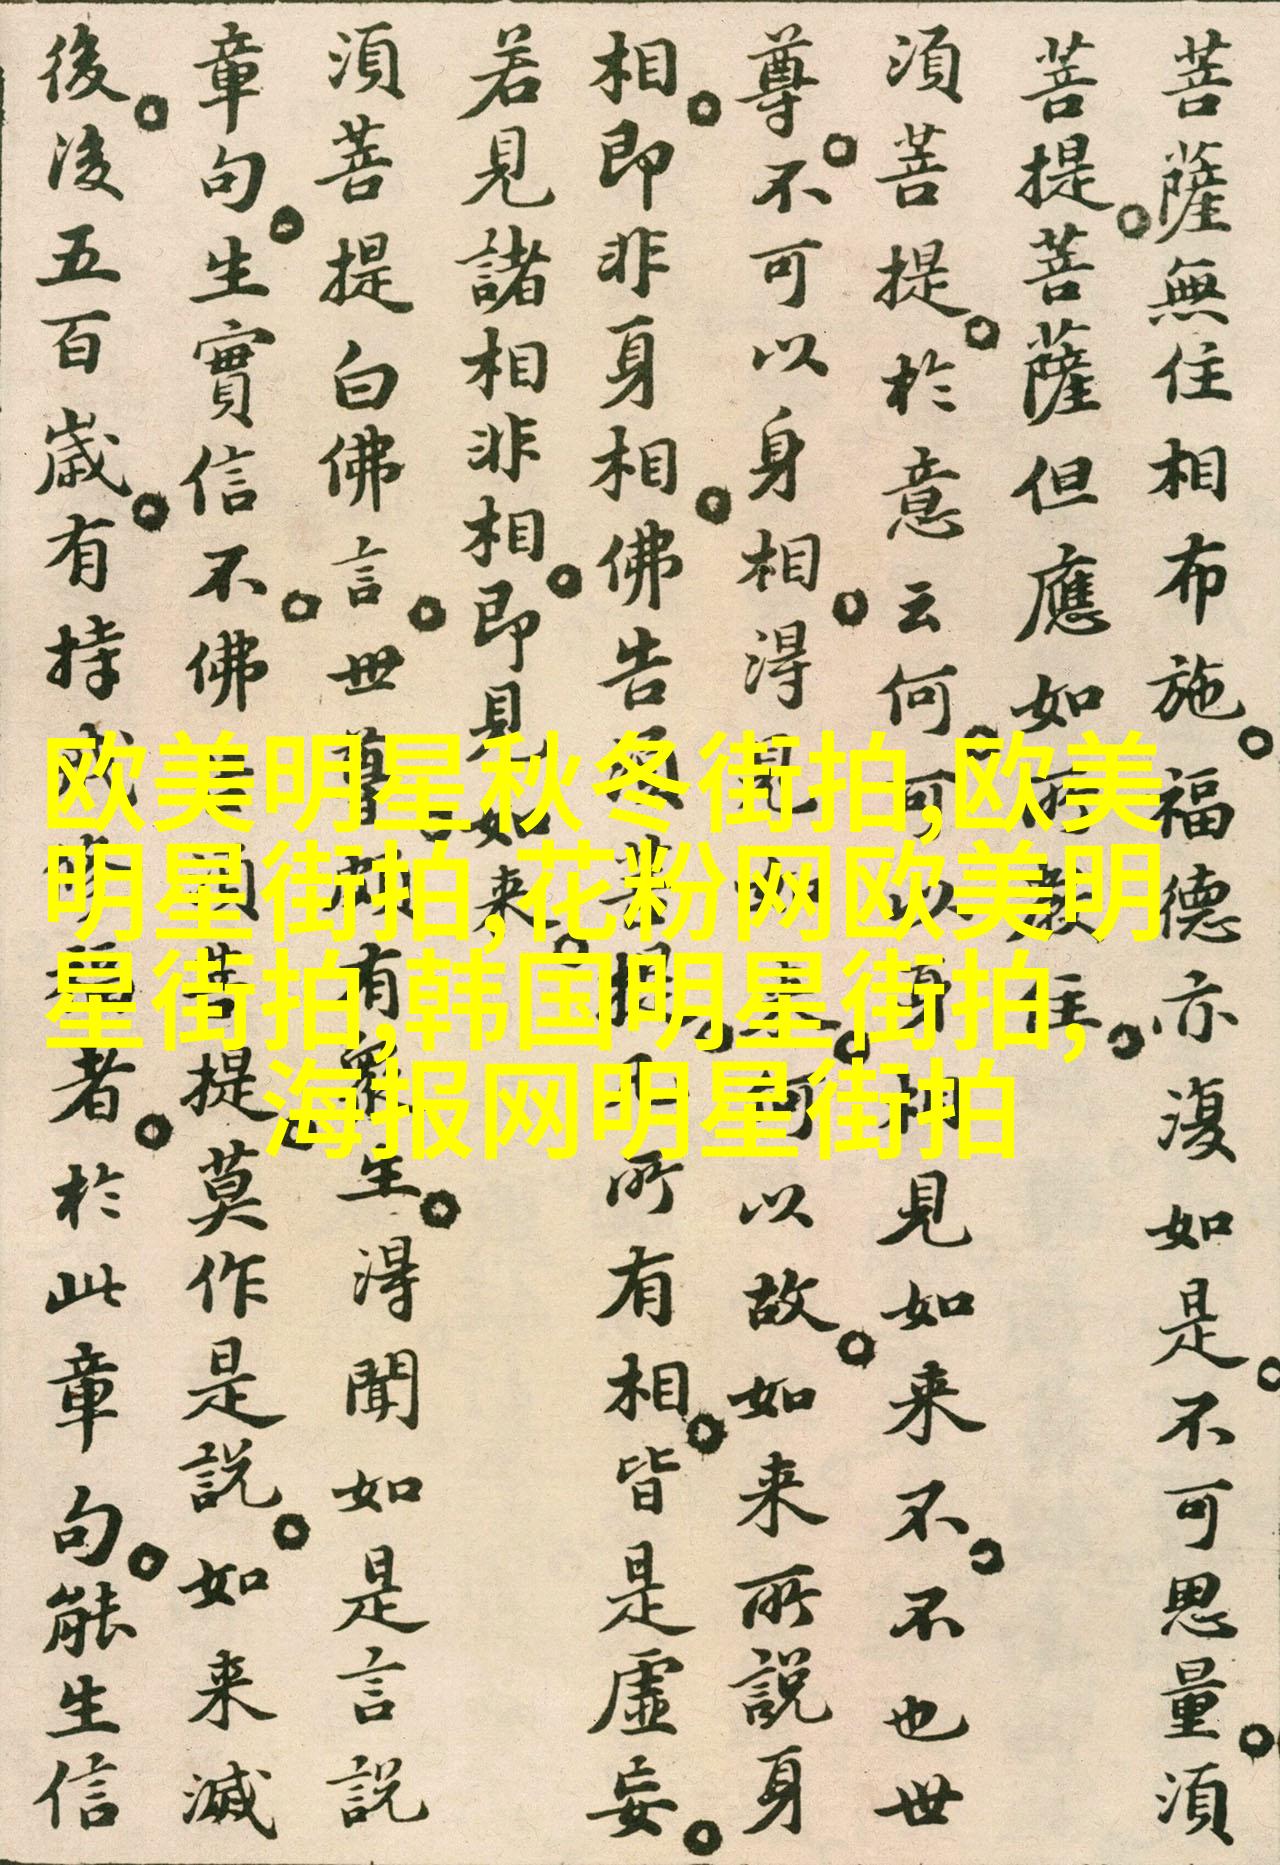 菩薩無住相布施。福德亦復如是。不可思量。須
菩提。菩薩但應如所教住。
須菩提。於意云何。可以身相見如来不。不也世
尊。不可以身相。得見如来。何以故。如来所說身
相。即非身相。佛告須菩提。凡所有相。皆是虛妄。
若見諸相非相。即見如来。
須菩提白佛言。世尊。頗有眾生。得聞如是言說
章句。生實信不。佛告須菩提。莫作是說。如来滅
後。後五百歲。有持戒修福者。於此章句。能生信
欧美明星秋冬街拍,欧美
明星街拍,花粉网欧美明
星街拍,韩国明星街拍,
海报网明星街拍